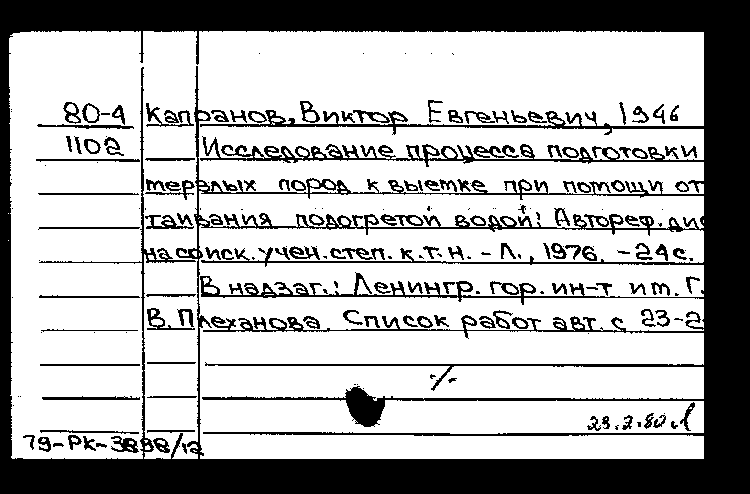 80-4 Капранов, Виктор Евгеньевич, 1946
1102 Исследование процесса подготовки
мерзлых пород к выемке при помощи от
таивания подогретой водой: Автореф. дис
на соиск. учен. степ. к.т.н. - Л., 1976. - 24 с.
В надзаг.: Ленингр. гор. ин-т им. Г.
В. Плеханова. Список работ авт. с 23-2
-/-
29.2.80
79-РК-3898/12